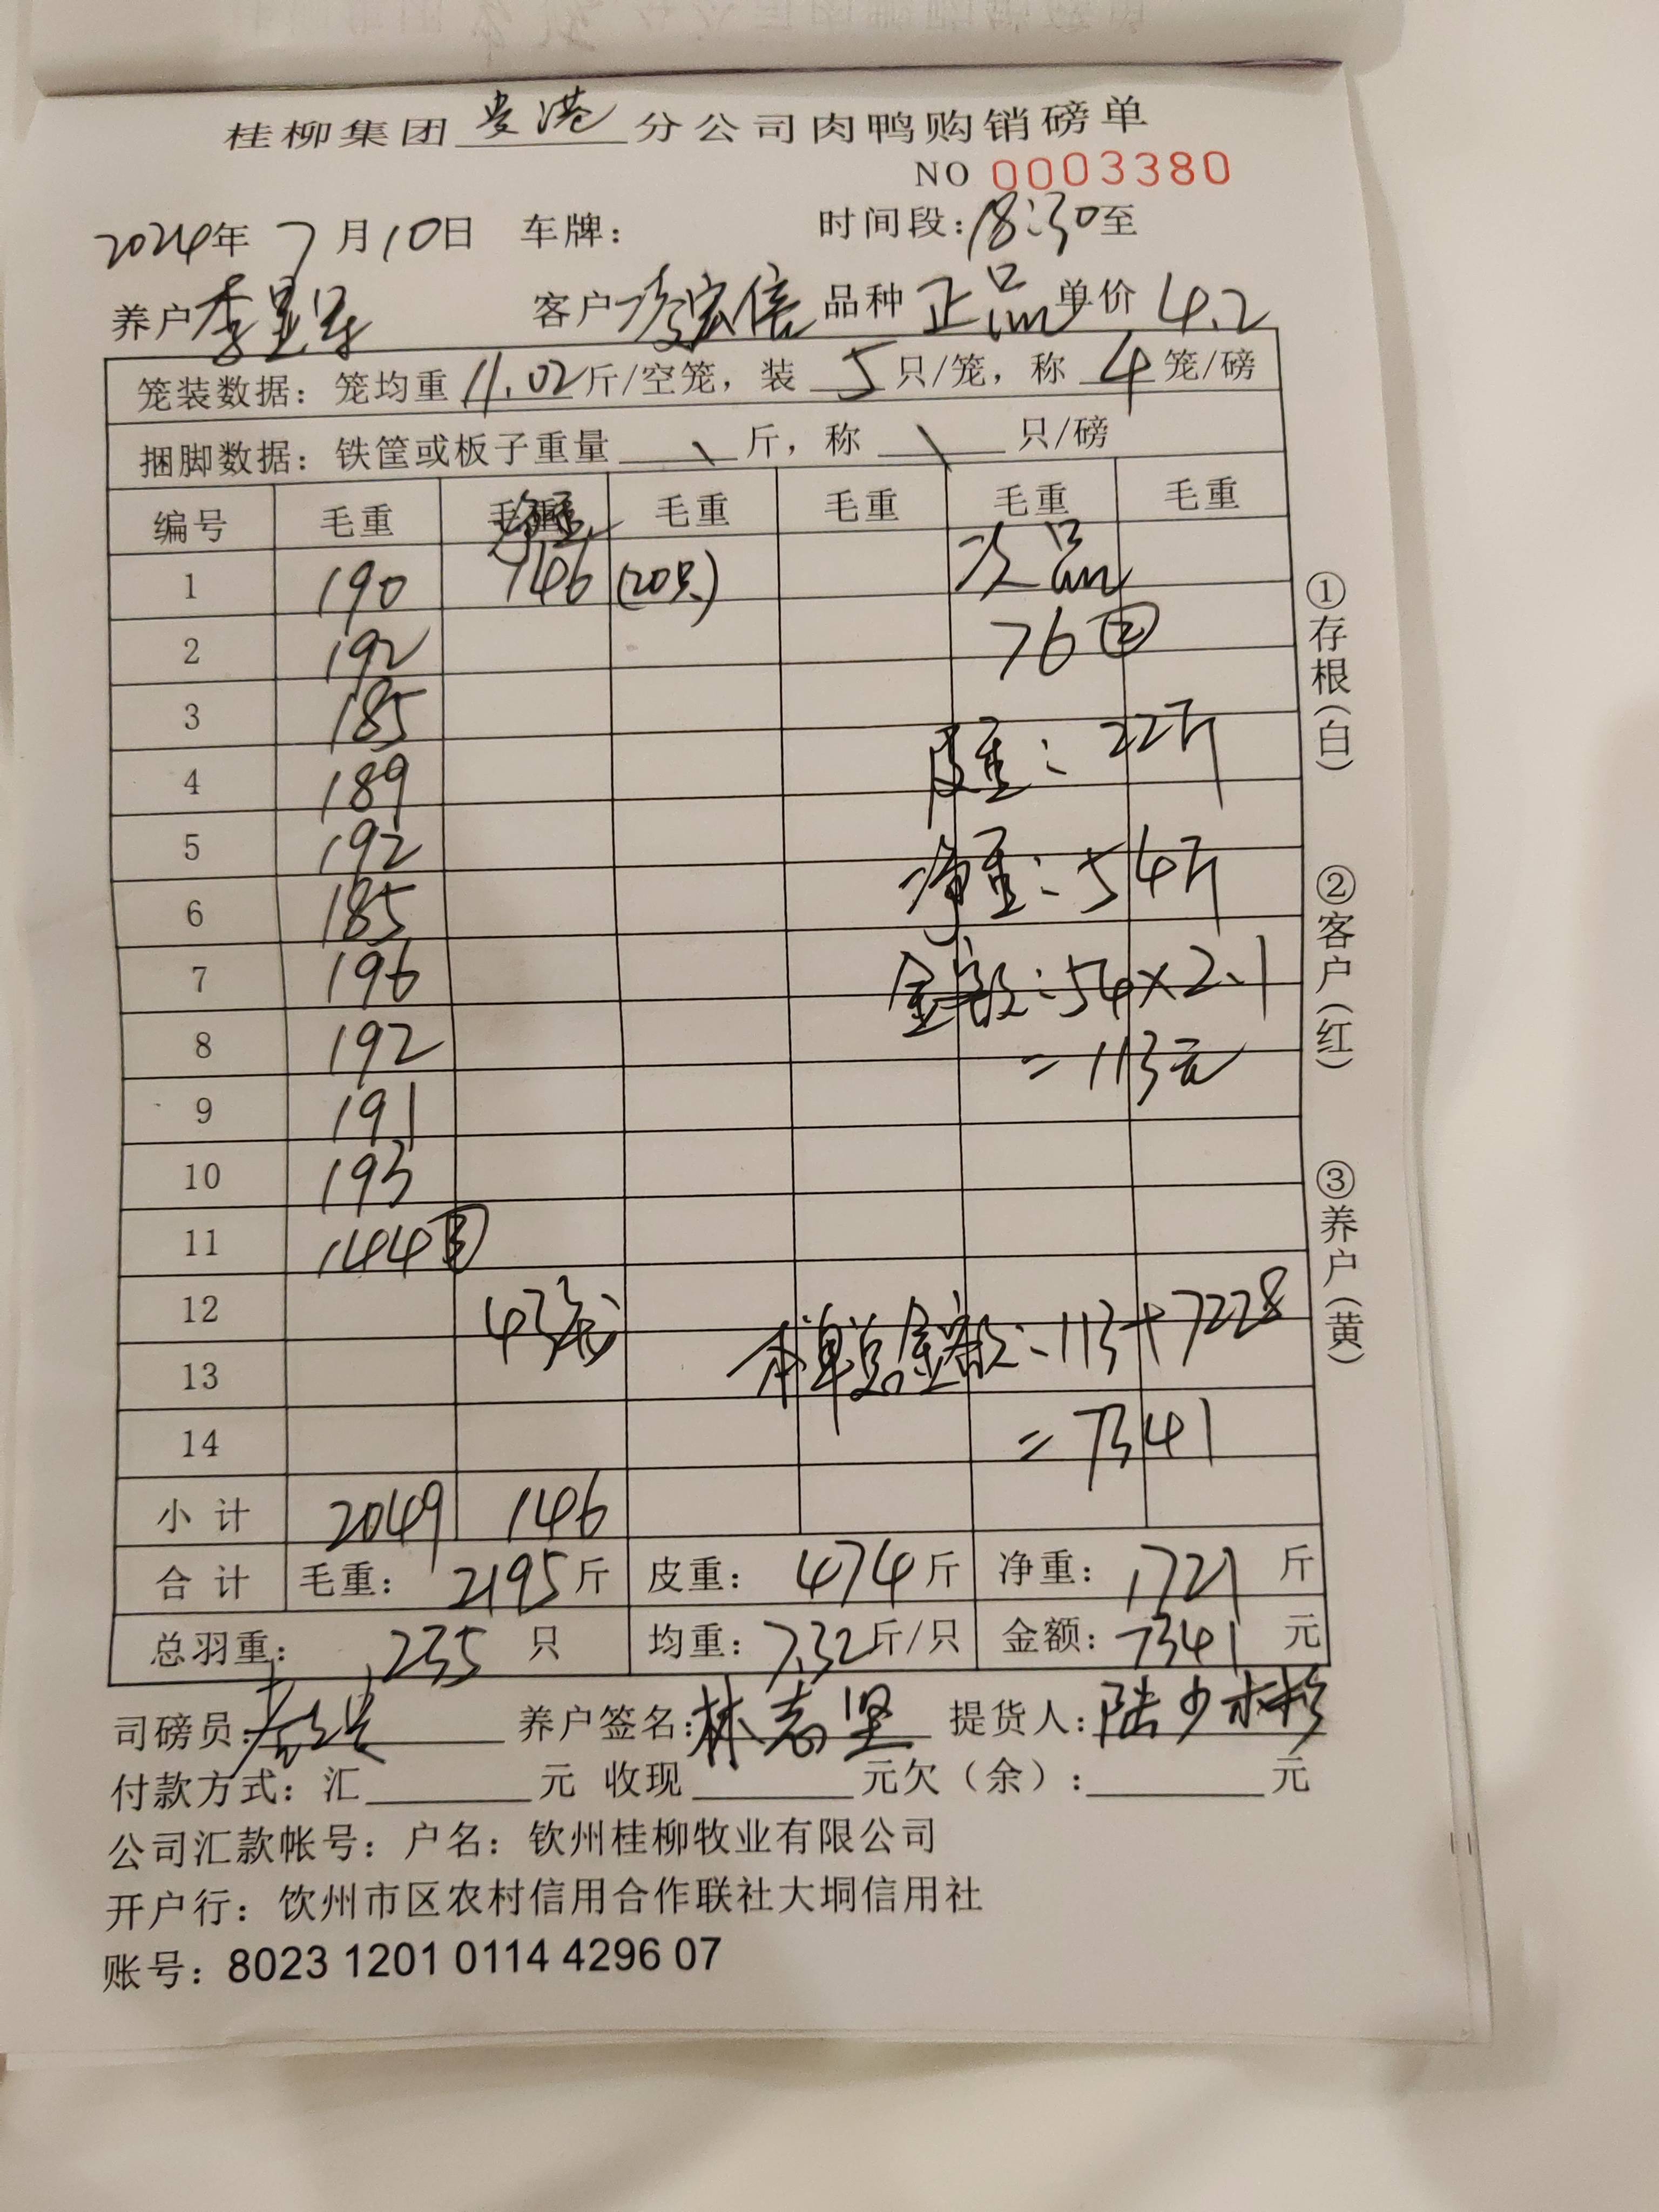 桂柳集团贵港分公司肉鸭购销磅单
NO 0003380
2024年7月10日 车牌： 时间段：18:30至
养户李 客户 宏信 品种 正品 单价 4.2
笼装数据：笼均重 11.02 斤/空笼，装 5 只/笼，称 4 笼/磅
捆脚数据：铁筐或板子重量 \ 斤，称 \ 只/磅
编号 毛重 净重 毛重 毛重 毛重 毛重
1 190 146 (20只) 次品
2 192 76②
3 185 皮重：22斤
4 189
5 192 净重：54斤
6 185
7 196 金额：54×2.1
8 192 =113元
9 191
10 193
11 144③
12 43笼 本单总金额：113+7228
13
14 =7341
小计 2049 146
合计 毛重：2195斤 皮重：474斤 净重：1721斤
总羽重：235只 均重：7.32斤/只 金额：7341元
司磅员： 养户签名：林志坚 提货人：陆少彬
付款方式：汇 元 收现 元欠（余）： 元
公司汇款帐号：户名：钦州桂柳牧业有限公司
开户行：钦州市区农村信用合作联社大垌信用社
账号：8023 1201 0114 4296 07
①存根（白）
②客户（红）
③养户（黄）